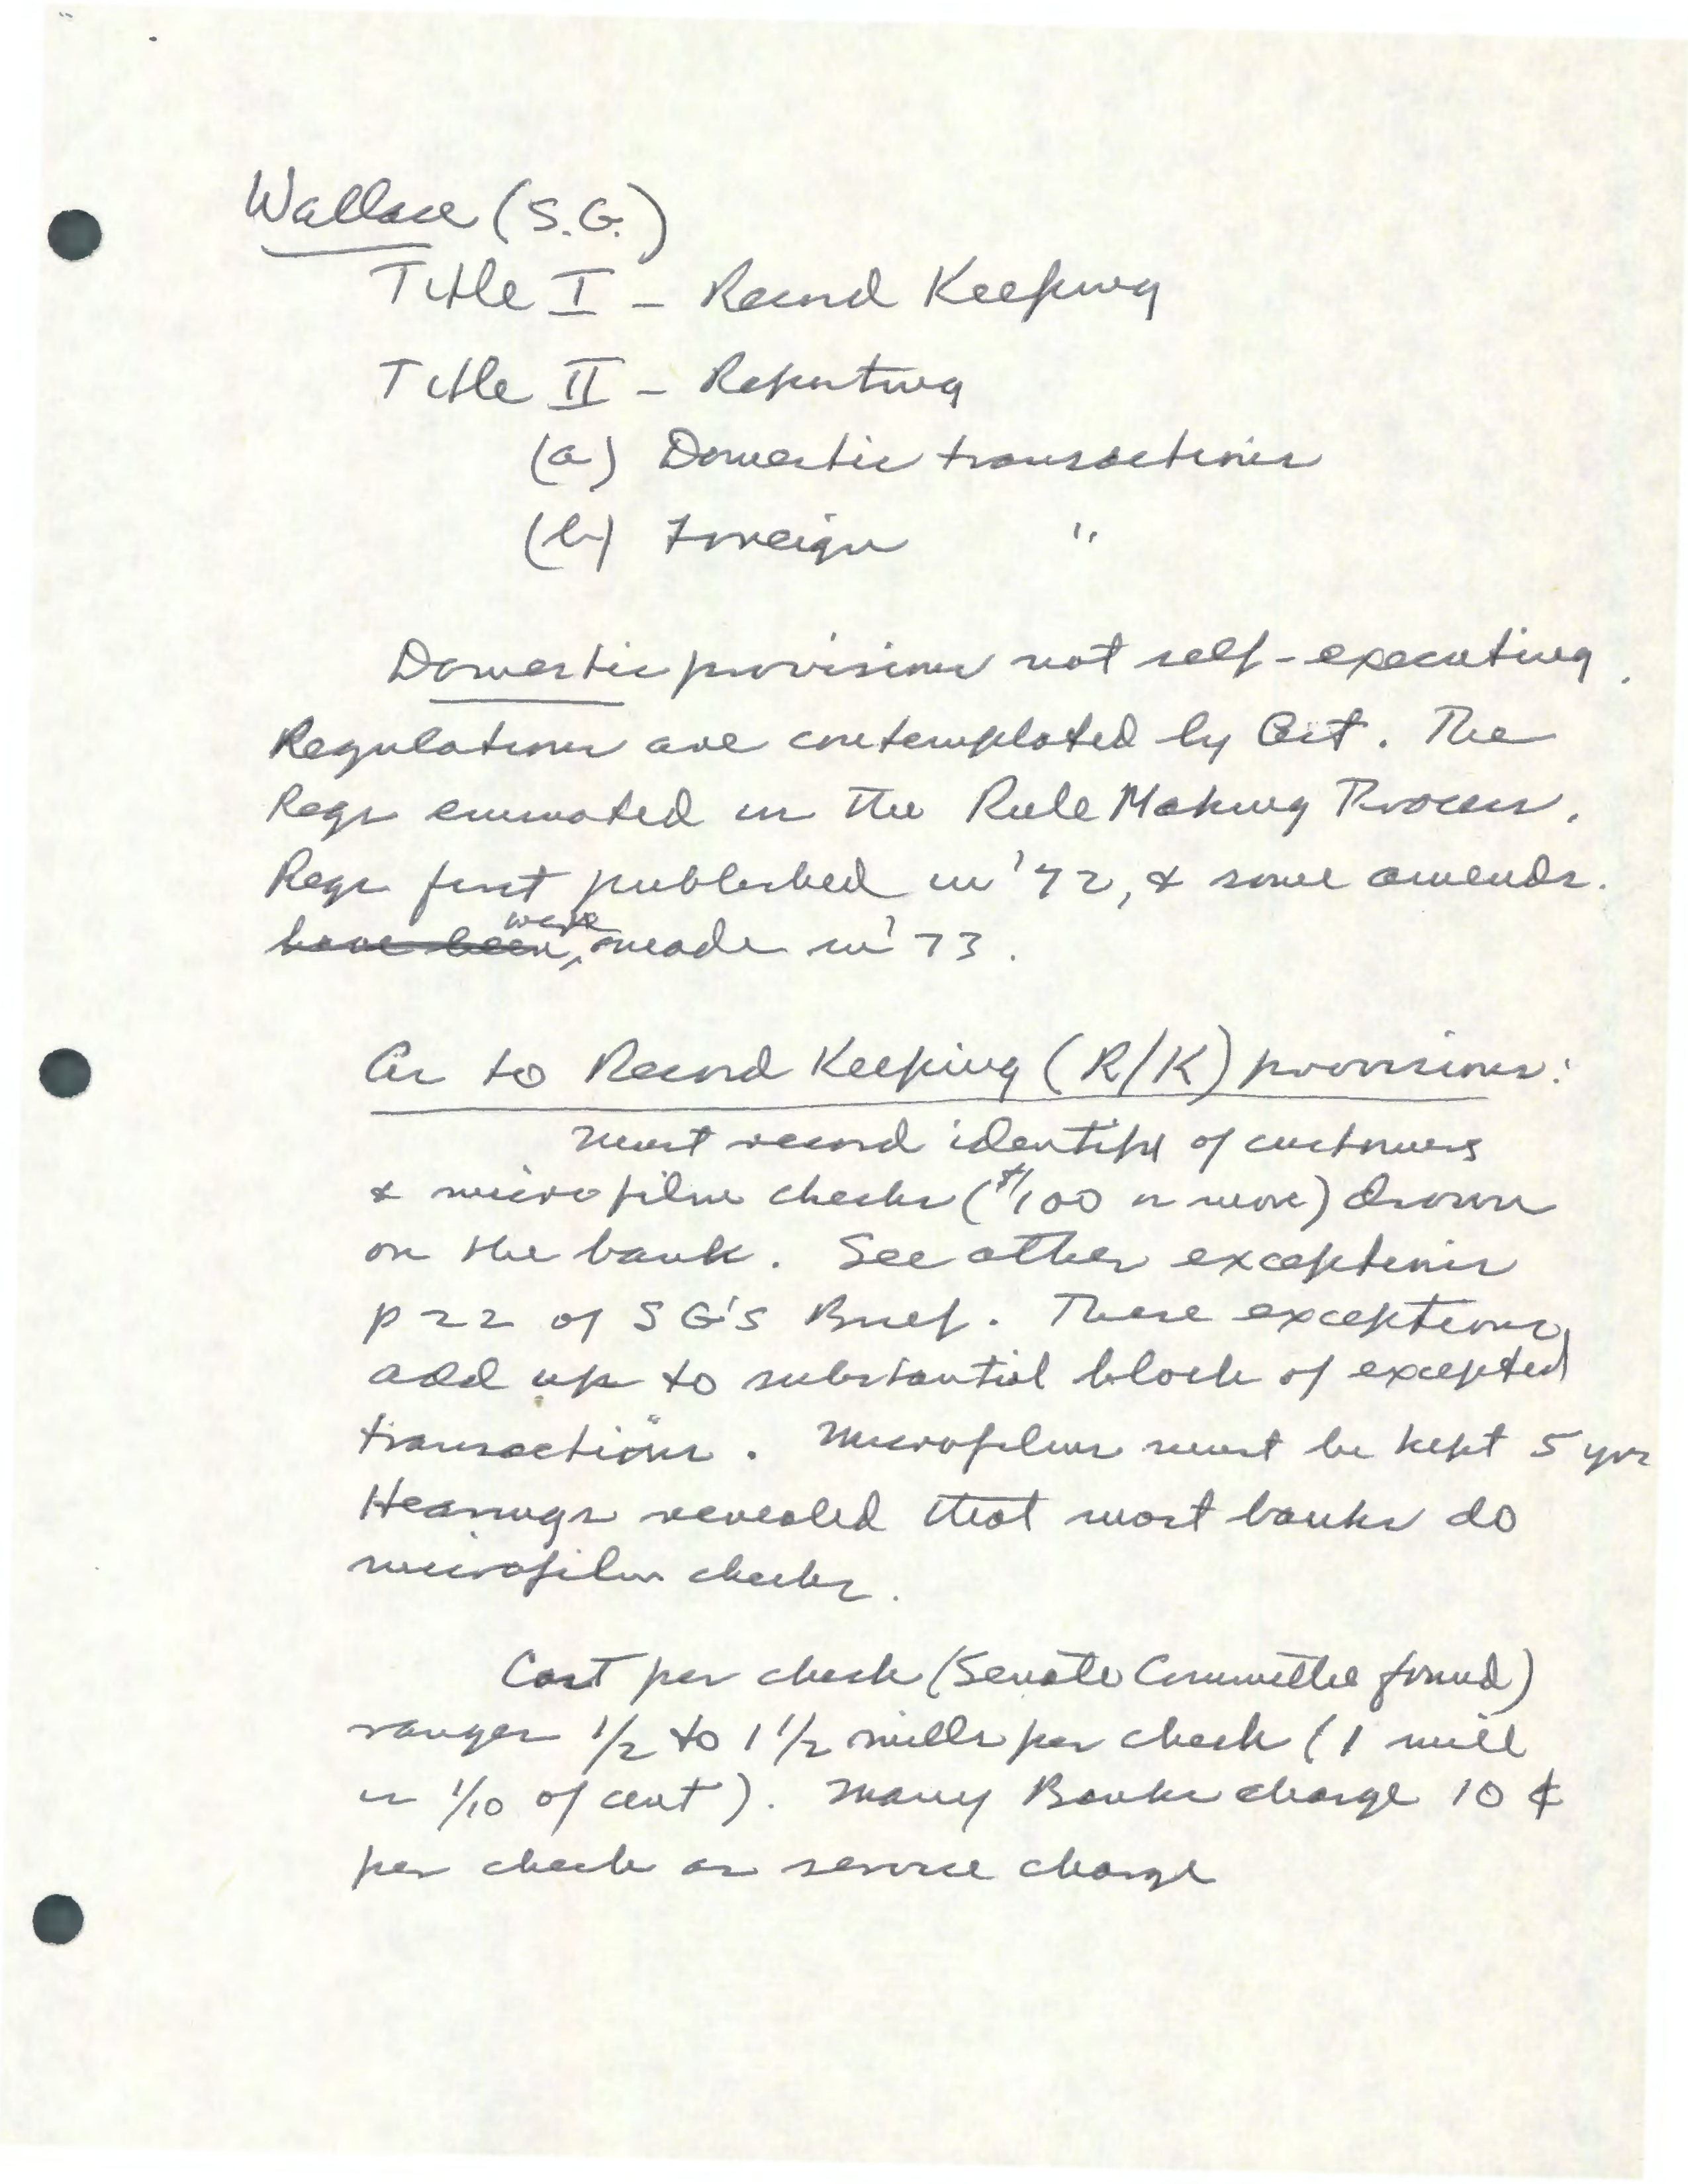 Wallace (S.G.)
Title I - Record Keeping
Title II - Reporting
(a) Domestic transactions
(b) Foreign "
Domestic provisions not self-executing.
Regulations are contemplated by Act. The
Regs emanated in the Rule Making Process.
Regs first published in '72, & some amends.
have been were made in '73.
As to Record Keeping (R/K) provisions:
Must record identity of customers
& microfilm checks ($100 or more) drawn
on the bank. See other exceptions
p 22 of SG's Brief. These exceptions
add up to substantial block of excepted
transactions. Microfilms must be kept 5 yrs
Hearings revealed that most banks do
microfilm checks.
Cost per check (Senate Committee found)
ranges 1/2 to 1 1/2 mills per check (1 mill
is 1/10 of cent). Many Banks charge 10 ¢
per check as service charge